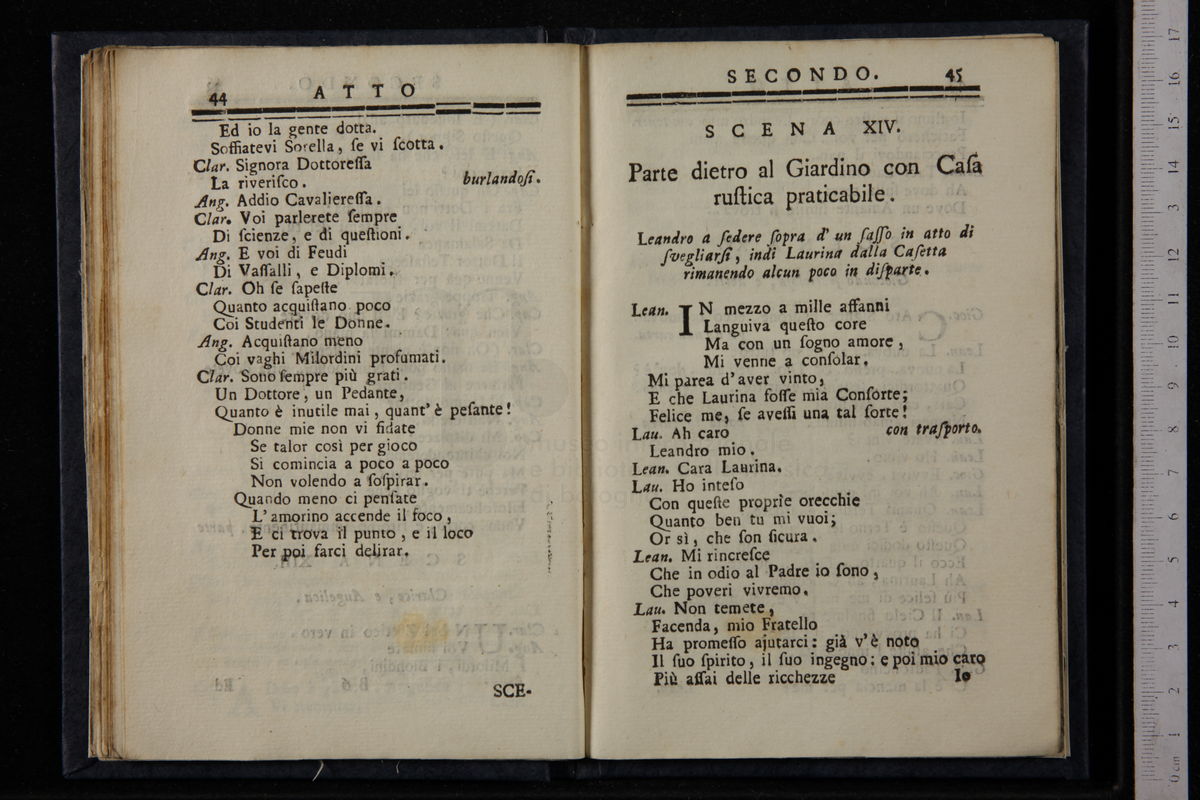 44 ATTO
Ed io la gente dotta.
Soffiatevi Sorella, ſe vi ſcotta.
Clar. Signora Dottoreſſa
La riveriſco. burlandoſi.
Ang. Addio Cavaliereſſa.
Clar. Voi parlerete ſempre
Di ſcienze, e di queſtioni.
Ang. E voi di Feudi
Di Vaſſalli, e Diplomi.
Clar. Oh ſe ſapeſte
Quanto acquiſtano poco
Coi Studenti le Donne.
Ang. Acquiſtano meno
Coi vaghi Milordini profumati.
Clar. Sono ſempre più grati.
Un Dottore, un Pedante,
Quanto è inutile mai, quant' è peſante!
Donne mie non vi fidate
Se talor così per gioco
Si comincia a poco a poco
Non volendo a ſoſpirar.
Quando meno ci penſate
L' amorino accende il foco,
E ci trova il punto, e il loco
Per poi farci delirar.
SCE-
SECONDO. 45
SCENA XIV.
Parte dietro al Giardino con Caſa
ruſtica praticabile.
Leandro a ſedere ſopra d' un ſaſſo in atto di
ſvegliarſi, indi Laurina dalla Caſetta
rimanendo alcun poco in diſparte.
Lean. IN mezzo a mille affanni
Languiva queſto core
Ma con un ſogno amore,
Mi venne a conſolar.
Mi parea d'aver vinto,
E che Laurina foſſe mia Conſorte;
Felice me, ſe aveſſi una tal ſorte!
Lau. Ah caro con traſporto.
Leandro mio.
Lean. Cara Laurina.
Lau. Ho inteſo
Con queſte proprie orecchie
Quanto ben tu mi vuoi;
Or sì, che ſon ſicura.
Lean. Mi rincreſce
Che in odio al Padre io ſono,
Che poveri vivremo.
Lau. Non temete,
Facenda, mio Fratello
Ha promeſſo ajutarci: già v'è noto
Il ſuo ſpirito, il ſuo ingegno: e poi mio caro
Più aſſai delle ricchezze
Io